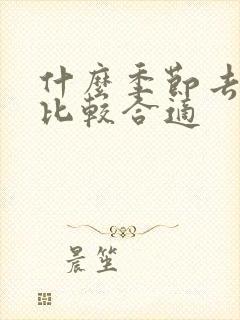 什麼季節去
比較合適
晨笙